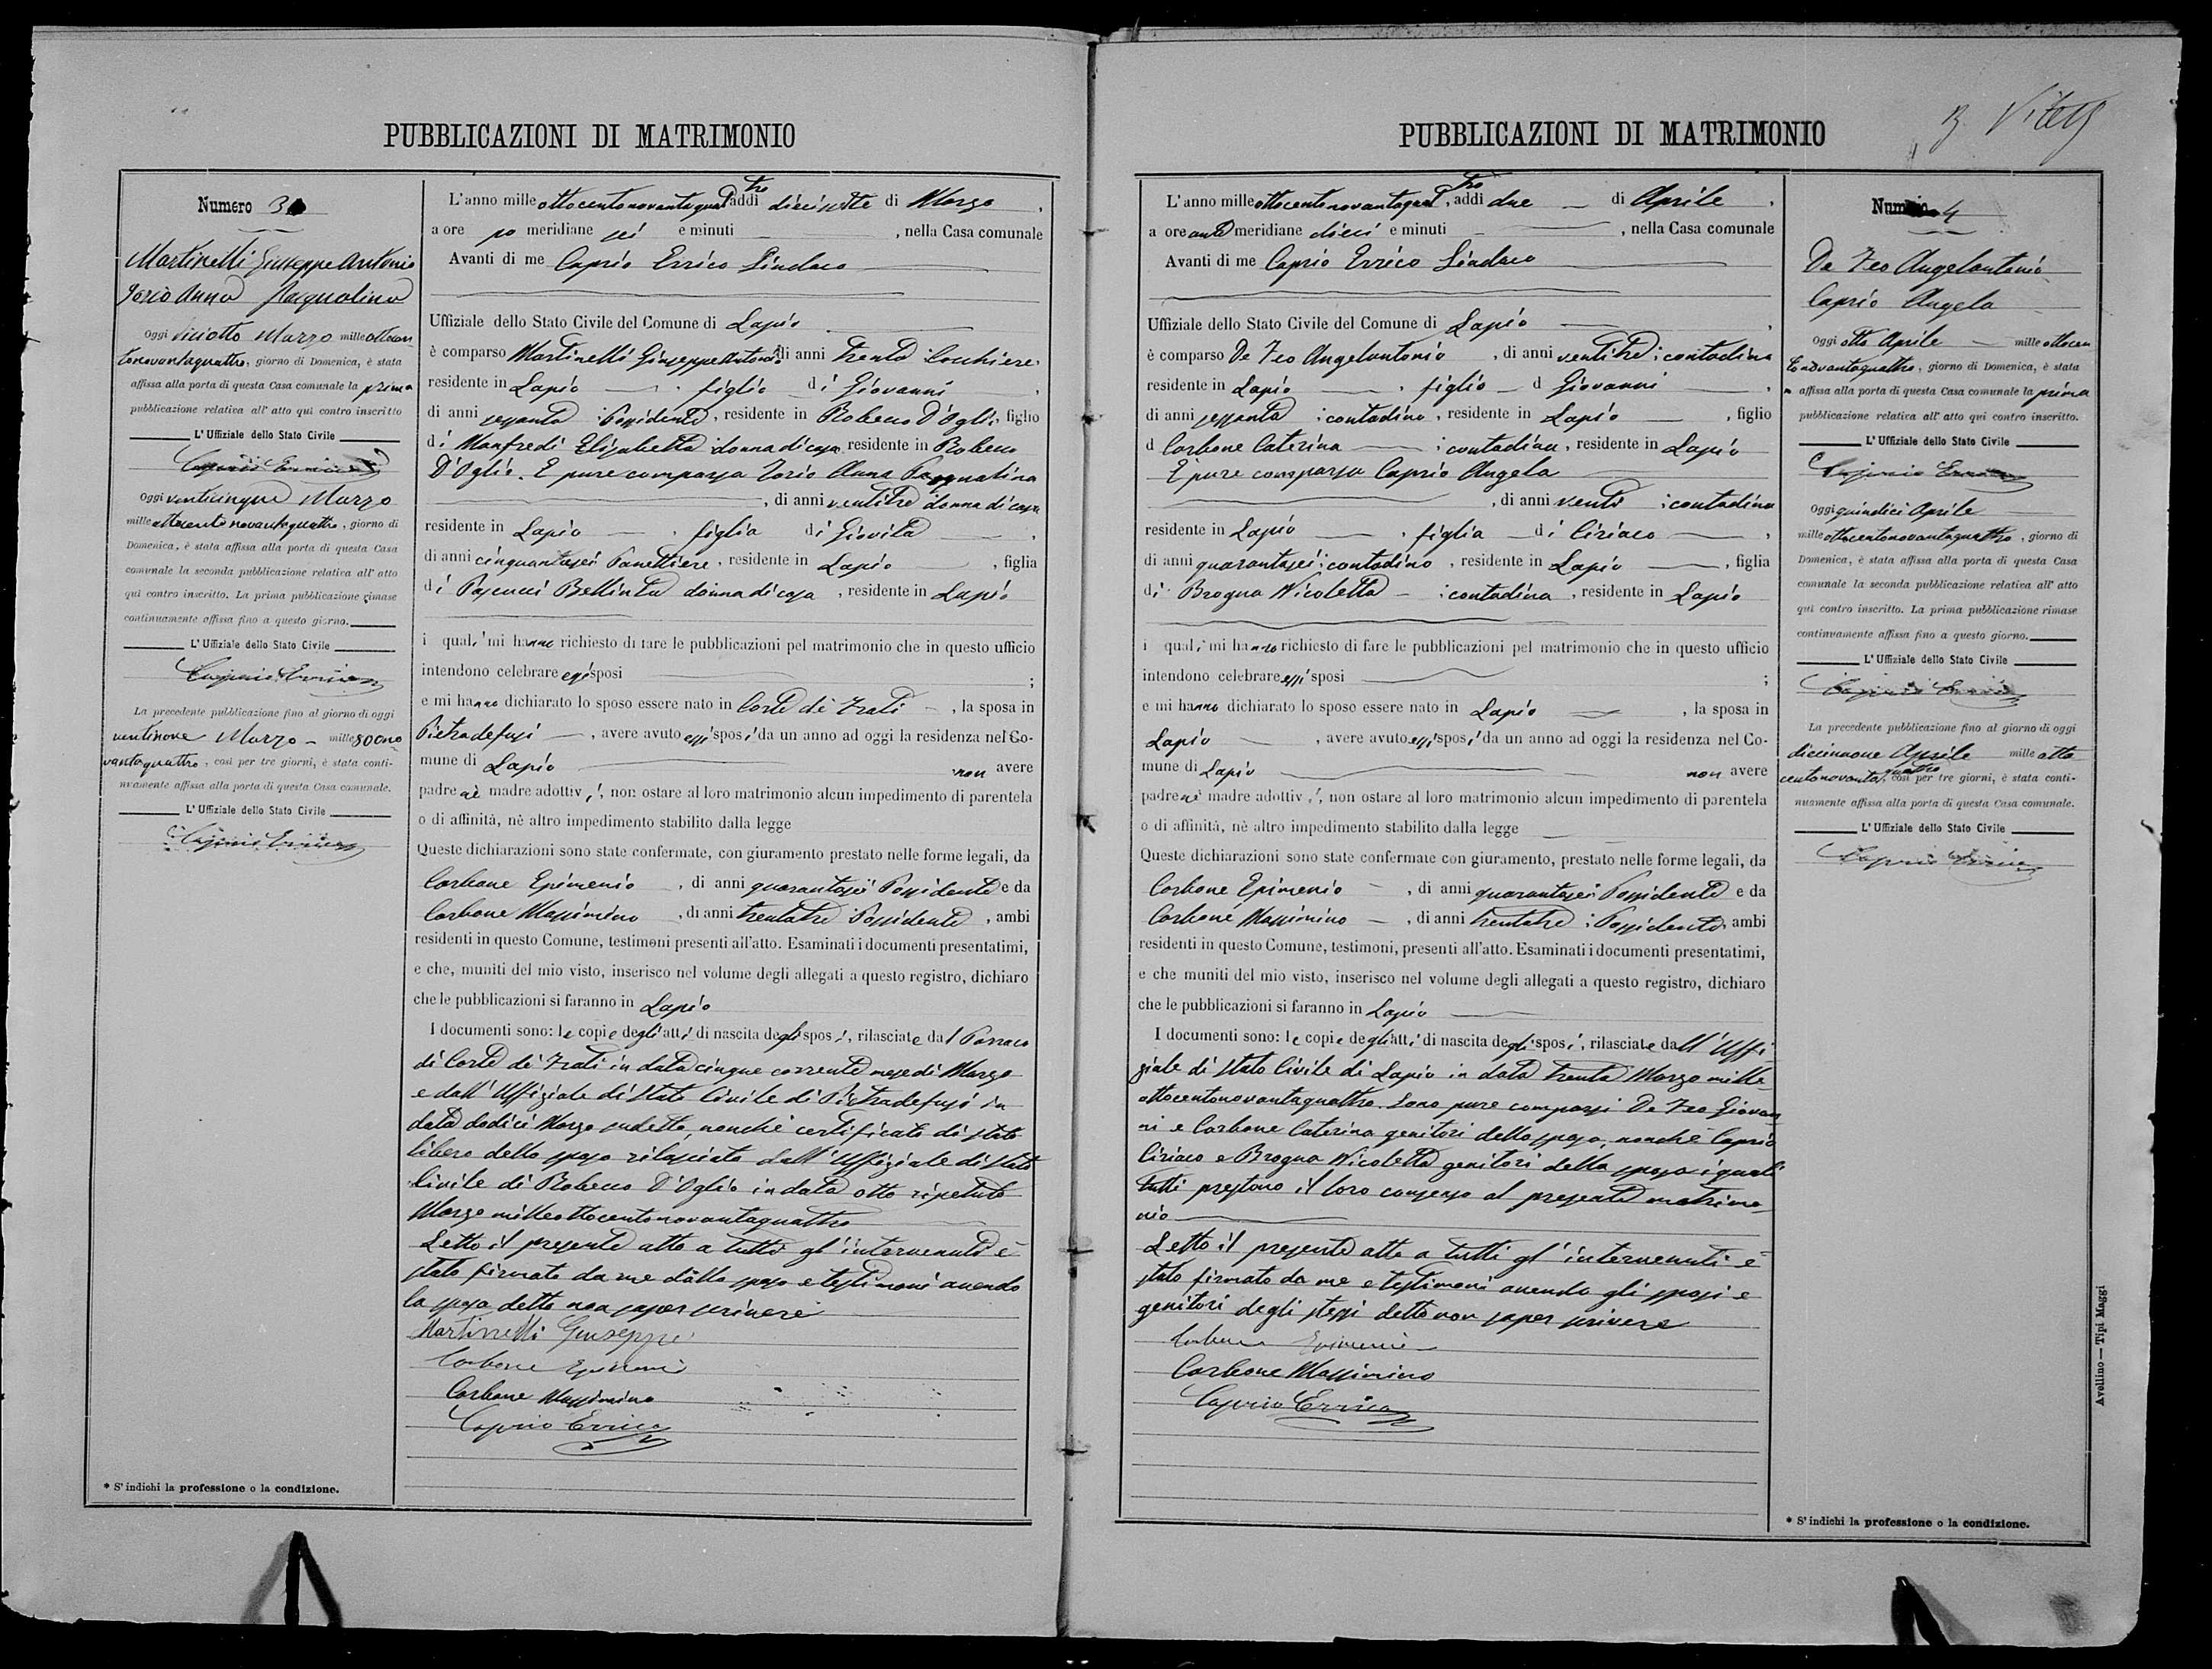 PUBBLICAZIONI DI MATRIMONIO
Numero 3
Martinelli Giuseppe Antonio
Iorio Anna Pasqualina
Oggi diciotto Marzo mille ottocen
tonovantaquattro, giorno di Domenica, è stata
affissa alla porta di questa Casa comunale la prima
pubblicazione relativa all' atto qui contro inscritto
L' Uffiziale dello Stato Civile
Caprio Errico
Oggi venticinque Marzo
mille ottocento novantaquattro, giorno di
Domenica, è stata affissa alla porta di questa Casa
comunale la seconda pubblicazione relativa all' atto
qui contro inscritto. La prima pubblicazione rimase
continuamente affissa fino a questo giorno.
L' Uffiziale dello Stato Civile
Caprio Errico
La precedente pubblicazione fino al giorno di oggi
ventinove Marzo – mille 8ºcno
vantaquattro, così per tre giorni, è stata conti-
nuamente affissa alla porta di questa Casa comunale.
L' Uffiziale dello Stato Civile
Caprio Errico
* S' indichi la professione o la condizione.
L' anno mille ottocentonovantaquattro addì diecisette di Marzo,
a ore po meridiane sei e minuti , nella Casa comunale
Avanti di me Caprio Errico Sindaco
Uffiziale dello Stato Civile del Comune di Lapio
è comparso Martinelli Giuseppe Antonio di anni trenta Cocchiere,
residente in Lapio, figlio di Giovanni,
di anni sessanta Possidente, residente in Robecco D'Oglio, figlio
di Manfredi Elisabetta donna di casa, residente in Robecco
D'Oglio. È pure comparsa Iorio Anna Pasqualina
, di anni ventitre donna di casa
residente in Lapio, figlia di Giovita,
di anni cinquantasei Panettiere, residente in Lapio, figlia
di Pascucci Bellinda donna di casa, residente in Lapio
i quali mi hanno richiesto di fare le pubblicazioni pel matrimonio che in questo ufficio
intendono celebrare essi sposi ;
e mi hanno dichiarato lo sposo essere nato in Corte de' Frati –, la sposa in
Pietradefusi –, avere avuto essi sposi da un anno ad oggi la residenza nel Co-
mune di Lapio non avere
padre nè madre adottivi, non ostare al loro matrimonio alcun impedimento di parentela
o di affinità, nè altro impedimento stabilito dalla legge
Queste dichiarazioni sono state confermate, con giuramento prestato nelle forme legali, da
Carbone Epimenio, di anni quarantasei Possidente e da
Carbone Massimino, di anni trentatre Possidente, ambi
residenti in questo Comune, testimoni presenti all'atto. Esaminati i documenti presentatimi,
e che, muniti del mio visto, inserisco nel volume degli allegati a questo registro, dichiaro
che le pubblicazioni si faranno in Lapio
I documenti sono: le copie degli atti di nascita degli sposi, rilasciate dal Parroco
di Corte de' Frati in data cinque corrente mese di Marzo
e dall' Uffiziale di Stato Civile di Pietradefusi in
data dodici Marzo sudetto, nonchè certificato di stato
libero dello sposo rilasciato dall' Uffiziale di Stato
Civile di Robecco D'Oglio in data otto ripetuto
Marzo milleottocentonovantaquattro
Letto il presente atto a tutti gl' intervenuti è
stato firmato da me dallo sposo e testimoni avendo
la sposa detto non saper scrivere
Martinelli Giuseppe
Carbone Epimenio
Carbone Massimino
Caprio Errico
PUBBLICAZIONI DI MATRIMONIO
L' anno mille ottocentonovantaquattro, addì due – di Aprile,
a ore ante meridiane dieci e minuti – , nella Casa comunale
Avanti di me Caprio Errico Sindaco
Uffiziale dello Stato Civile del Comune di Lapio,
è comparso De Feo Angelantonio, di anni ventitre: contadino
residente in Lapio, figlio – d Giovanni,
di anni sessanta: contadino, residente in Lapio, figlio
d Carbone Caterina : contadina, residente in Lapio
È pure comparsa Caprio Angela
, di anni venti : contadina
residente in Lapio, figlia – di Ciriaco,
di anni quarantasei: contadino, residente in Lapio, figlia
di Brogna Nicoletta – : contadina, residente in Lapio
i quali mi hanno richiesto di fare le pubblicazioni pel matrimonio che in questo ufficio
intendono celebrare essi sposi ;
e mi hanno dichiarato lo sposo essere nato in Lapio, la sposa in
Lapio, avere avuto essi sposi da un anno ad oggi la residenza nel Co-
mune di Lapio non avere
padre nè madre adottivi, non ostare al loro matrimonio alcun impedimento di parentela
o di affinità, nè altro impedimento stabilito dalla legge
Queste dichiarazioni sono state confermate con giuramento, prestato nelle forme legali, da
Carbone Epimenio –, di anni quarantasei Possidente e da
Carbone Massimino –, di anni trentatre: Possidente, ambi
residenti in questo Comune, testimoni, presenti all'atto. Esaminati i documenti presentatimi,
e che muniti del mio visto, inserisco nel volume degli allegati a questo registro, dichiaro
che le pubblicazioni si faranno in Lapio
I documenti sono: le copie degli atti di nascita degli sposi, rilasciate dall' Uffi-
ziale di Stato Civile di Lapio in data trenta Marzo mille-
ottocentonovantaquattro. Sono pure comparsi De Feo Giovan
ni e Carbone Caterina genitori dello sposo, nonchè Caprio
Ciriaco e Brogna Nicoletta genitori della sposa i quali
tutti prestano il loro consenso al presente matrimo-
nio
Letto il presente atto a tutti gl' intervenuti è
stato firmato da me e testimoni avendo gli sposi e
genitori degli stessi detto non saper scrivere
Carbone Epimenio
Carbone Massimino
Caprio Errico
Numero 4
De Feo Angelantonio
Caprio Angela
Oggi otto Aprile – mille ottocen
tonovantaquattro, giorno di Domenica, è stata
affissa alla porta di questa Casa comunale la prima
pubblicazione relativa all' atto qui contro inscritto.
L' Uffiziale dello Stato Civile
Caprio Errico
Oggi quindici Aprile
mille ottocentonovantaquattro, giorno di
Domenica, è stata affissa alla porta di questa Casa
comunale la seconda pubblicazione relativa all' atto
qui contro inscritto. La prima pubblicazione rimase
continuamente affissa fino a questo giorno.
L' Uffiziale dello Stato Civile
Caprio Errico
La precedente pubblicazione fino al giorno di oggi
diciannove Aprile mille otto
centonovantaquattro, così per tre giorni, è stata conti-
nuamente affissa alla porta di questa Casa comunale.
L' Uffiziale dello Stato Civile
Caprio Errico
* S' indichi la professione o la condizione.
Avellino — Tipi Maggi